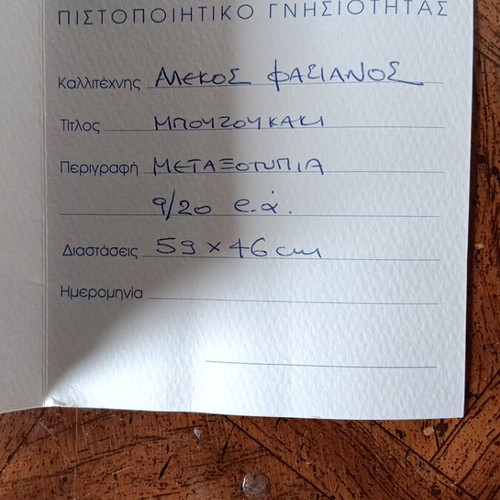 ΠΙΣΤΟΠΟΙΗΤΙΚΟ ΓΝΗΣΙΟΤΗΤΑΣ
Καλλιτέχνης ΑΛΕΚΟΣ ΦΑΣΙΑΝΟΣ
Τίτλος ΜΠΟΥΖΟΥΚΑΚΙ
Περιγραφή ΜΕΤΑΞΟΤΥΠΙΑ
9/20 e.a.
Διαστάσεις 59 x 46 cm
Ημερομηνία